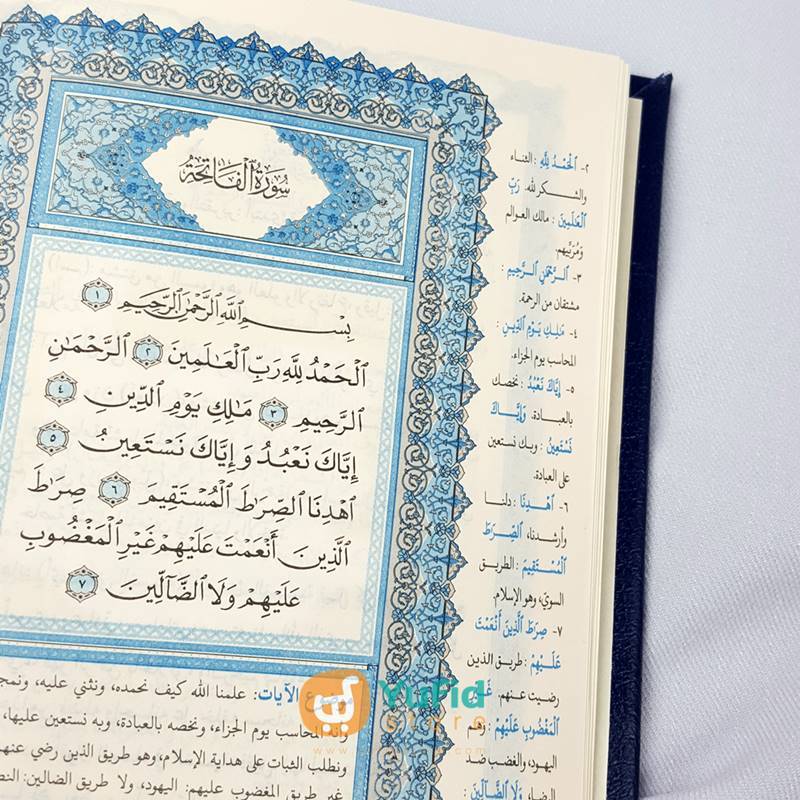 سُورَةُ ٱلْفَاتِحَةِ
بِسْمِ ٱللَّهِ ٱلرَّحْمَٰنِ ٱلرَّحِيمِ ١
ٱلْحَمْدُ لِلَّهِ رَبِّ ٱلْعَٰلَمِينَ ٢ ٱلرَّحْمَٰنِ
ٱلرَّحِيمِ ٣ مَٰلِكِ يَوْمِ ٱلدِّينِ ٤
إِيَّاكَ نَعْبُدُ وَإِيَّاكَ نَسْتَعِينُ ٥
ٱهْدِنَا ٱلصِّرَٰطَ ٱلْمُسْتَقِيمَ ٦ صِرَٰطَ
ٱلَّذِينَ أَنْعَمْتَ عَلَيْهِمْ غَيْرِ ٱلْمَغْضُوبِ
عَلَيْهِمْ وَلَا ٱلضَّآلِّينَ ٧
٢- ٱلْحَمْدُ لِلَّهِ : الثناء
والشكر لله. رَبِّ
ٱلْعَٰلَمِينَ : مالك العوالم
ومُرَبِّيهم.
٣- ٱلرَّحْمَٰنِ ٱلرَّحِيمِ :
مشتقان من الرحمة.
٤- مَٰلِكِ يَوْمِ ٱلدِّينِ :
المحاسب يوم الجزاء.
٥- إِيَّاكَ نَعْبُدُ : نخصك
بالعبادة. وَإِيَّاكَ
نَسْتَعِينُ : وبك نستعين
على العبادة.
٦- ٱهْدِنَا : دلنا
وأرشدنا، ٱلصِّرَٰطَ
ٱلْمُسْتَقِيمَ : الطريق
السوي، وهو الإسلام.
٧- صِرَٰطَ ٱلَّذِينَ أَنْعَمْتَ
عَلَيْهِمْ : طريق الذين
رضيت عنهم.
ٱلْمَغْضُوبِ عَلَيْهِمْ : وهم
اليهود، والغضب ضد
الرضا. وَلَا ٱلضَّآلِّينَ :
موضوع الآيات: علمنا الله كيف نحمده، ونثني عليه،
وأنه المحاسب يوم الجزاء، ونخصه بالعبادة، وبه نستعين عليها،
ونطلب الثبات على هداية الإسلام، وهو طريق الذين رضي
غير طريق المغضوب عليهم: اليهود، ولا طريق الضالين:
Yufid
store